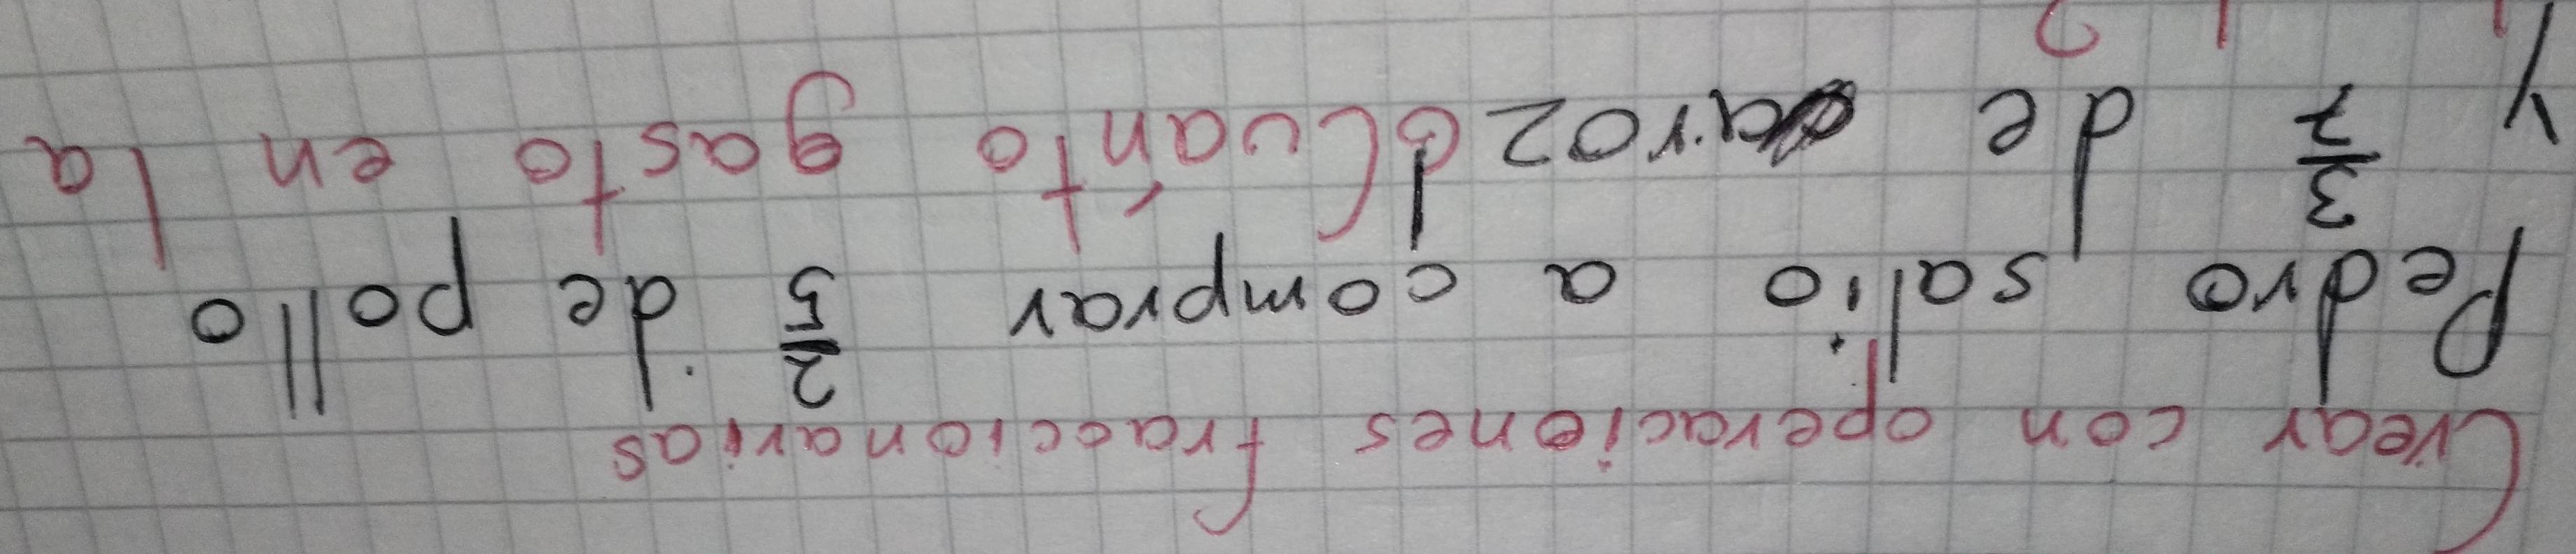 Crear con operaciones fraccionarias
Pedro salio a comprar 2/5 de pollo
Y 3/7 de aroz ¿Cuánto gasto en la
?